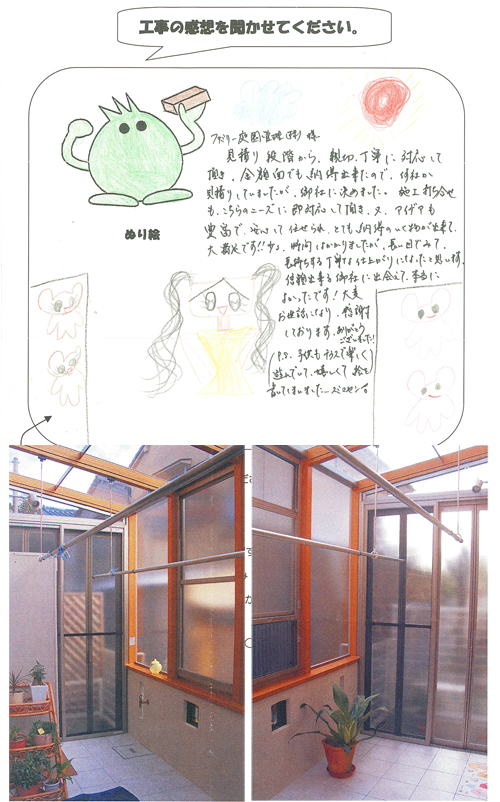 工事の感想を聞かせてください。
ファミリー庭園 様
見積り段階から、親切、丁寧に対応して
頂き、金額面でも納得出来たので、何社か
見積りしていましたが、御社に決めました。施工打ち合せ
も、こちらのニーズに即対応して頂き、又、アイデアも
豊富で、安心して任せられ、とても納得のいく物が出来て、
大満足です!! 時間はかかりましたが、長い目でみて、
長持ちする丁寧な仕上がりになったと思います。
信頼出来る御社に出会えて、本当に
よかったです! 大変
お世話になり、感謝
しております。ありがとう
ございました!
P.S. 子供もテラスで楽しく
遊んでいて、嬉しくて絵を
書いてしまいました…スミマセン
ぬり絵